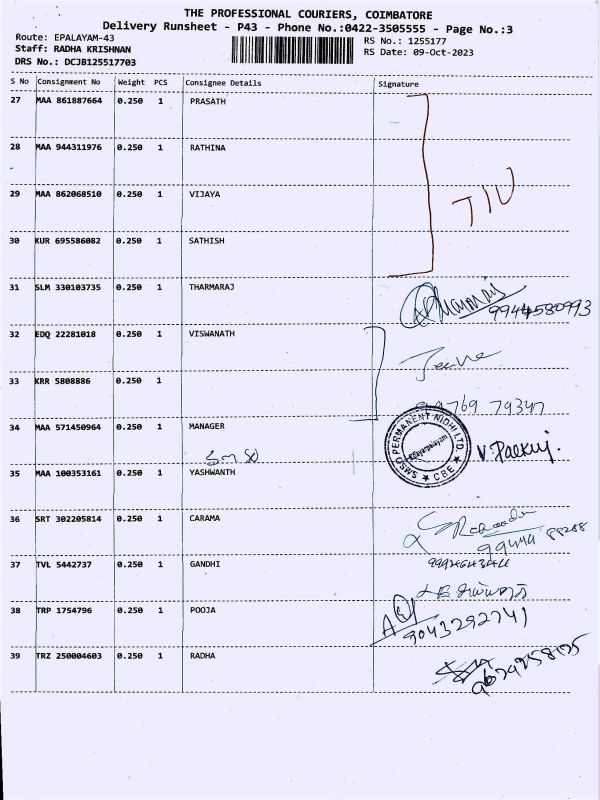 THE PROFESSIONAL COURIERS, COIMBATORE
Delivery Runsheet - P43 - Phone No.:0422-3505555 - Page No.:3
Route: EPALAYAM-43
RS No.: 1255177
Staff: RADHA KRISHNAN
RS Date: 09-Oct-2023
DRS No.: DCJB125517703
S No Consignment No Weight PCS Consignee Details Signature
27 MAA 861887664 0.250 1 PRASATH
28 MAA 944311976 0.250 1 RATHINA
29 MAA 862068510 0.250 1 VIJAYA
TIU
30 KUR 695586082 0.250 1 SATHISH
31 SLM 330103735 0.250 1 THARMARAJ
9944580993
32 EDQ 22281018 0.250 1 VISWANATH
33 KRR 5808886 0.250 1
99769 79347
34 MAA 571450964 0.250 1 MANAGER
PERMANENT NIDHI LTD.
CBE
35 MAA 100353161 0.250 1 YASHWANTH
36 SRT 302205814 0.250 1 CARAMA
99444 88288
37 TVL 5442737 0.250 1 GANDHI
38 TRP 1754796 0.250 1 POOJA
9043292741
39 TRZ 250004603 0.250 1 RADHA